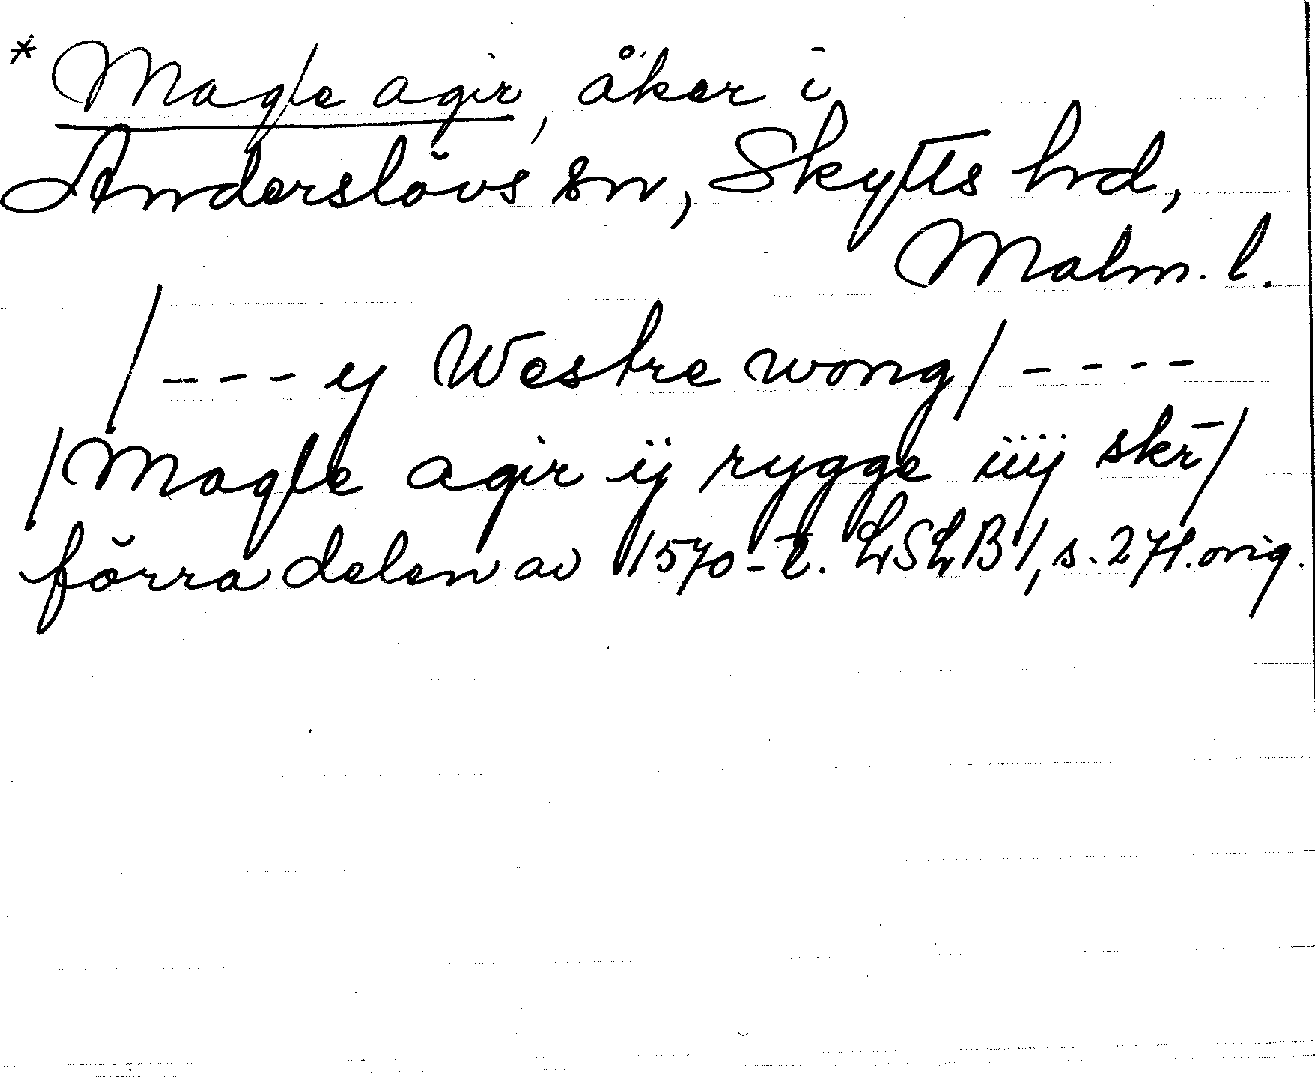 * Magle agir, åker i
Anderslövs sn, Skytts hrd,
Malm. l.
/---y Westre wong/----
/Magle agir ij rygge iiij skr̄/
förra delen av 1570-t. LSLB1, s. 271. orig.